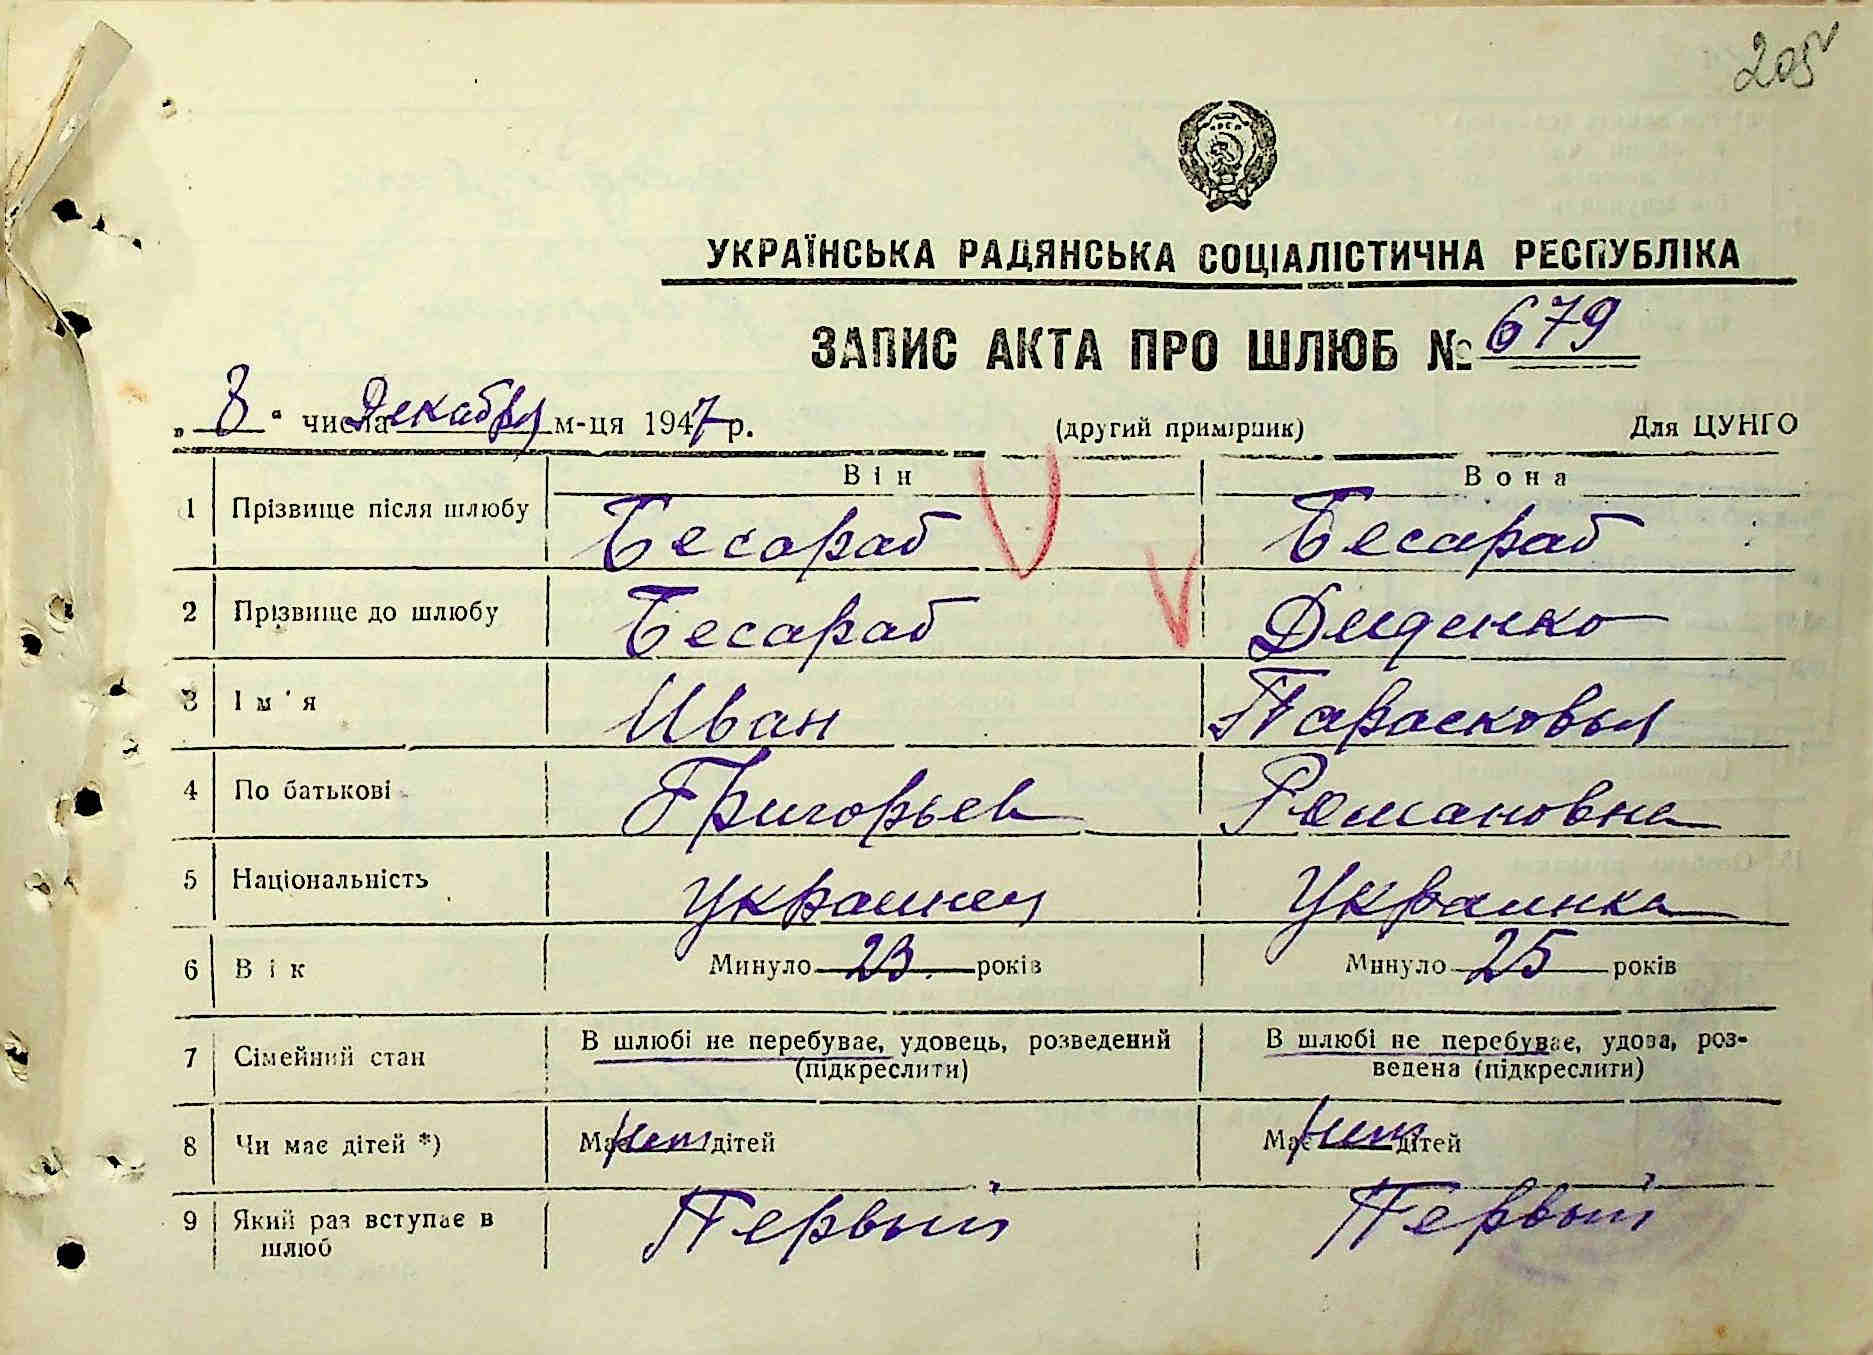 205
УКРАЇНСЬКА РАДЯНСЬКА СОЦІАЛІСТИЧНА РЕСПУБЛІКА
ЗАПИС АКТА ПРО ШЛЮБ № 679
„ 8 “ числа Декабря м-ця 1947 р. (другий примірник) Для ЦУНГО
Він Вона
1 Прізвище після шлюбу Бесараб Бесараб
2 Прізвище до шлюбу Бесараб Диденко
3 Ім'я Иван Парасковья
4 По батькові Григорьев Романовна
5 Національність украинец Украинка
6 Вік Минуло 23 років Минуло 25 років
7 Сімейний стан В шлюбі не перебуває, удовець, розведений В шлюбі не перебуває, удова, роз-
(підкреслити) ведена (підкреслити)
8 Чи має дітей *) Має нет дітей Має нет дітей
9 Який раз вступає в Первый Первый
шлюб